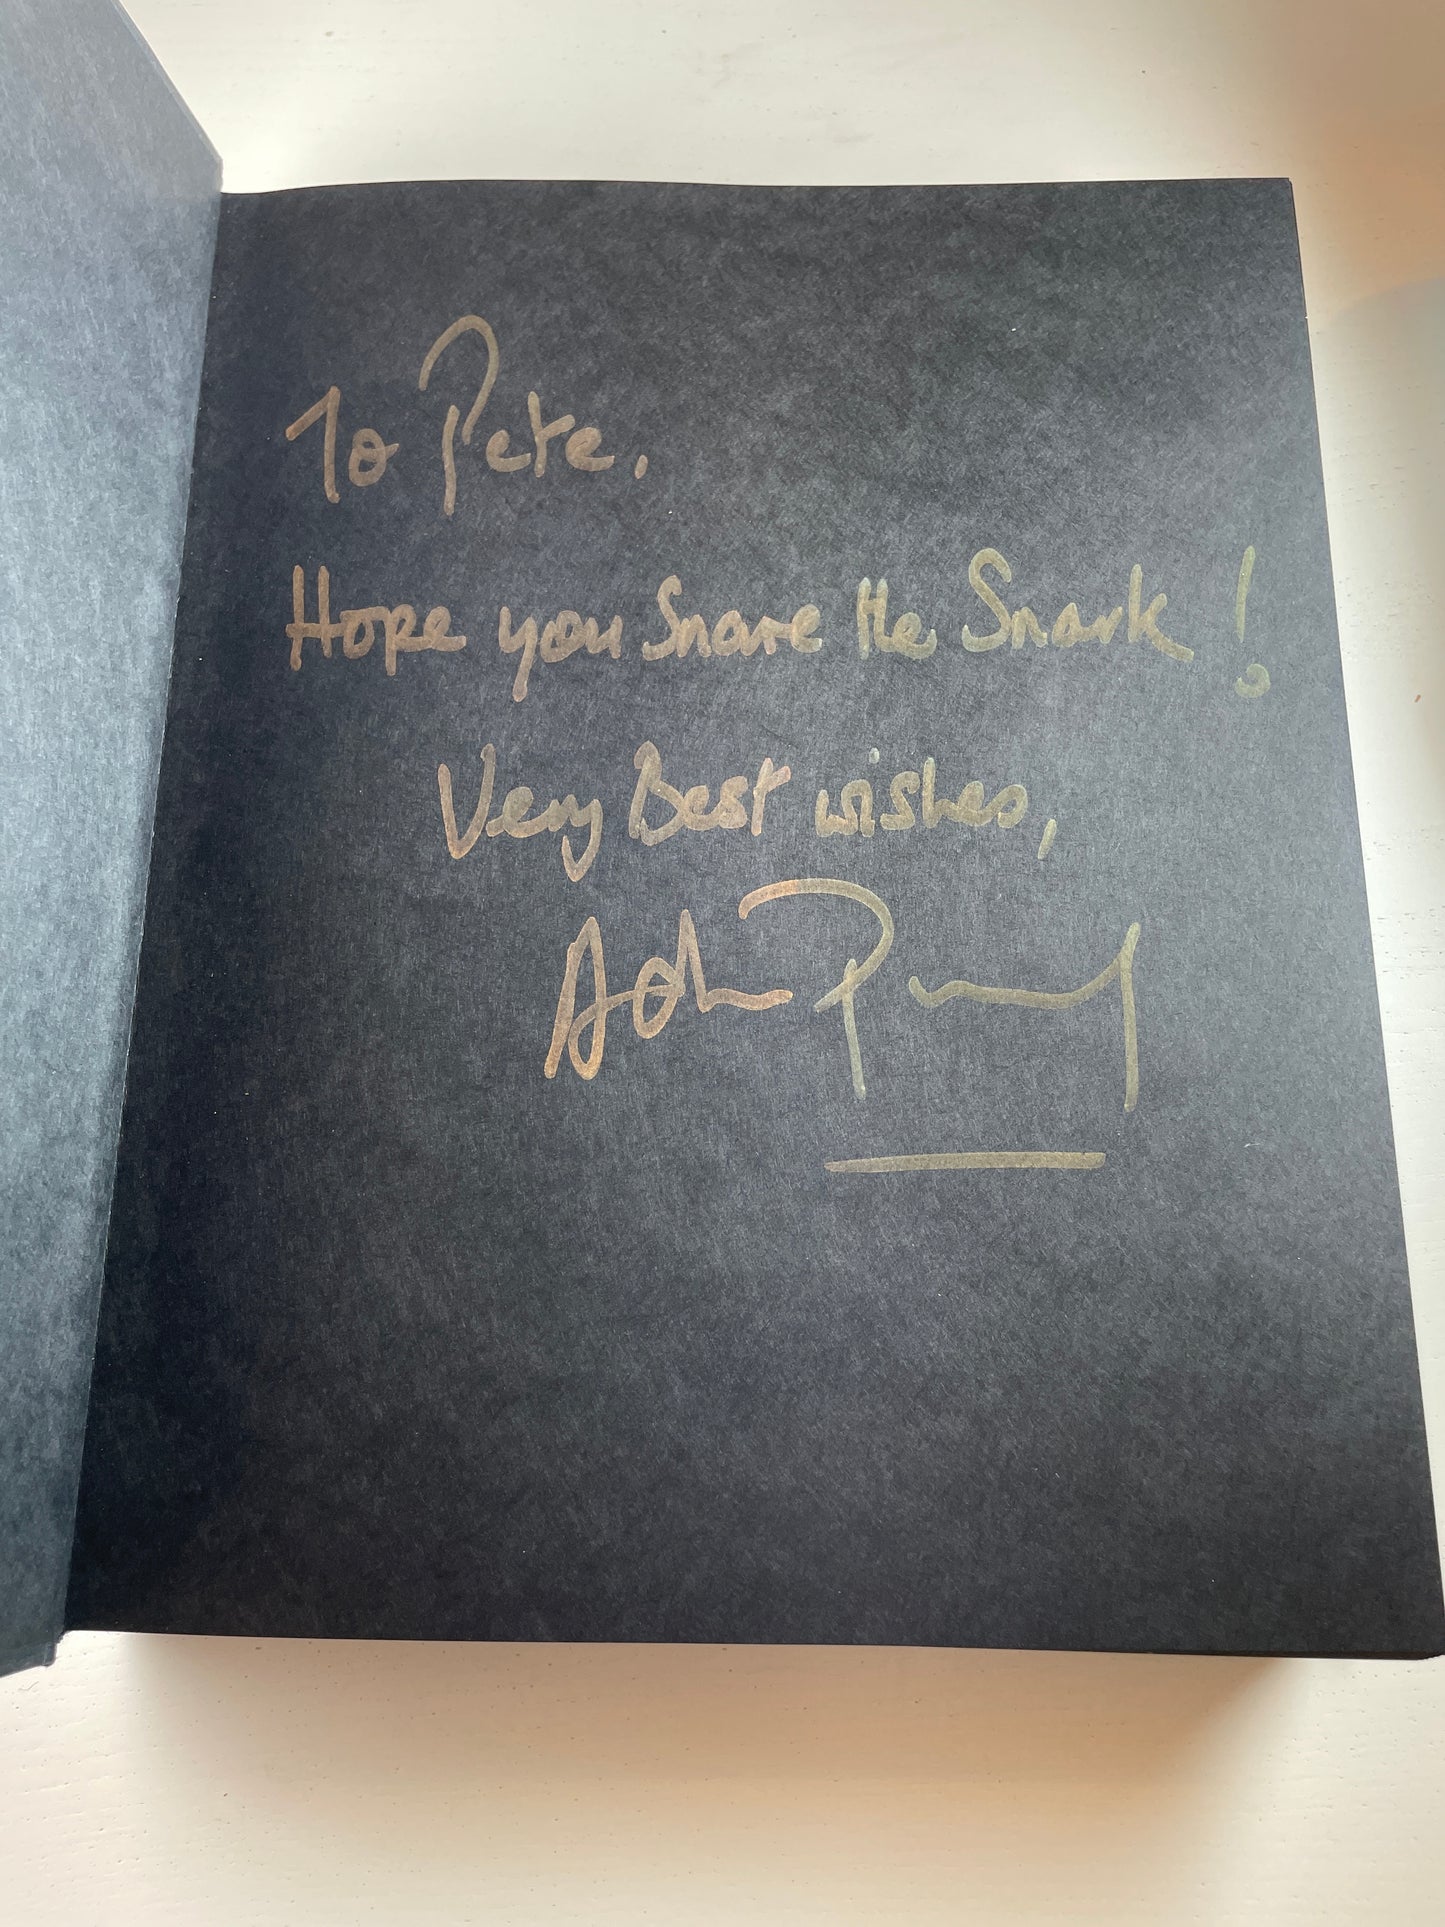 To Pete,
Hope you Snare the Snark!
Very Best wishes,